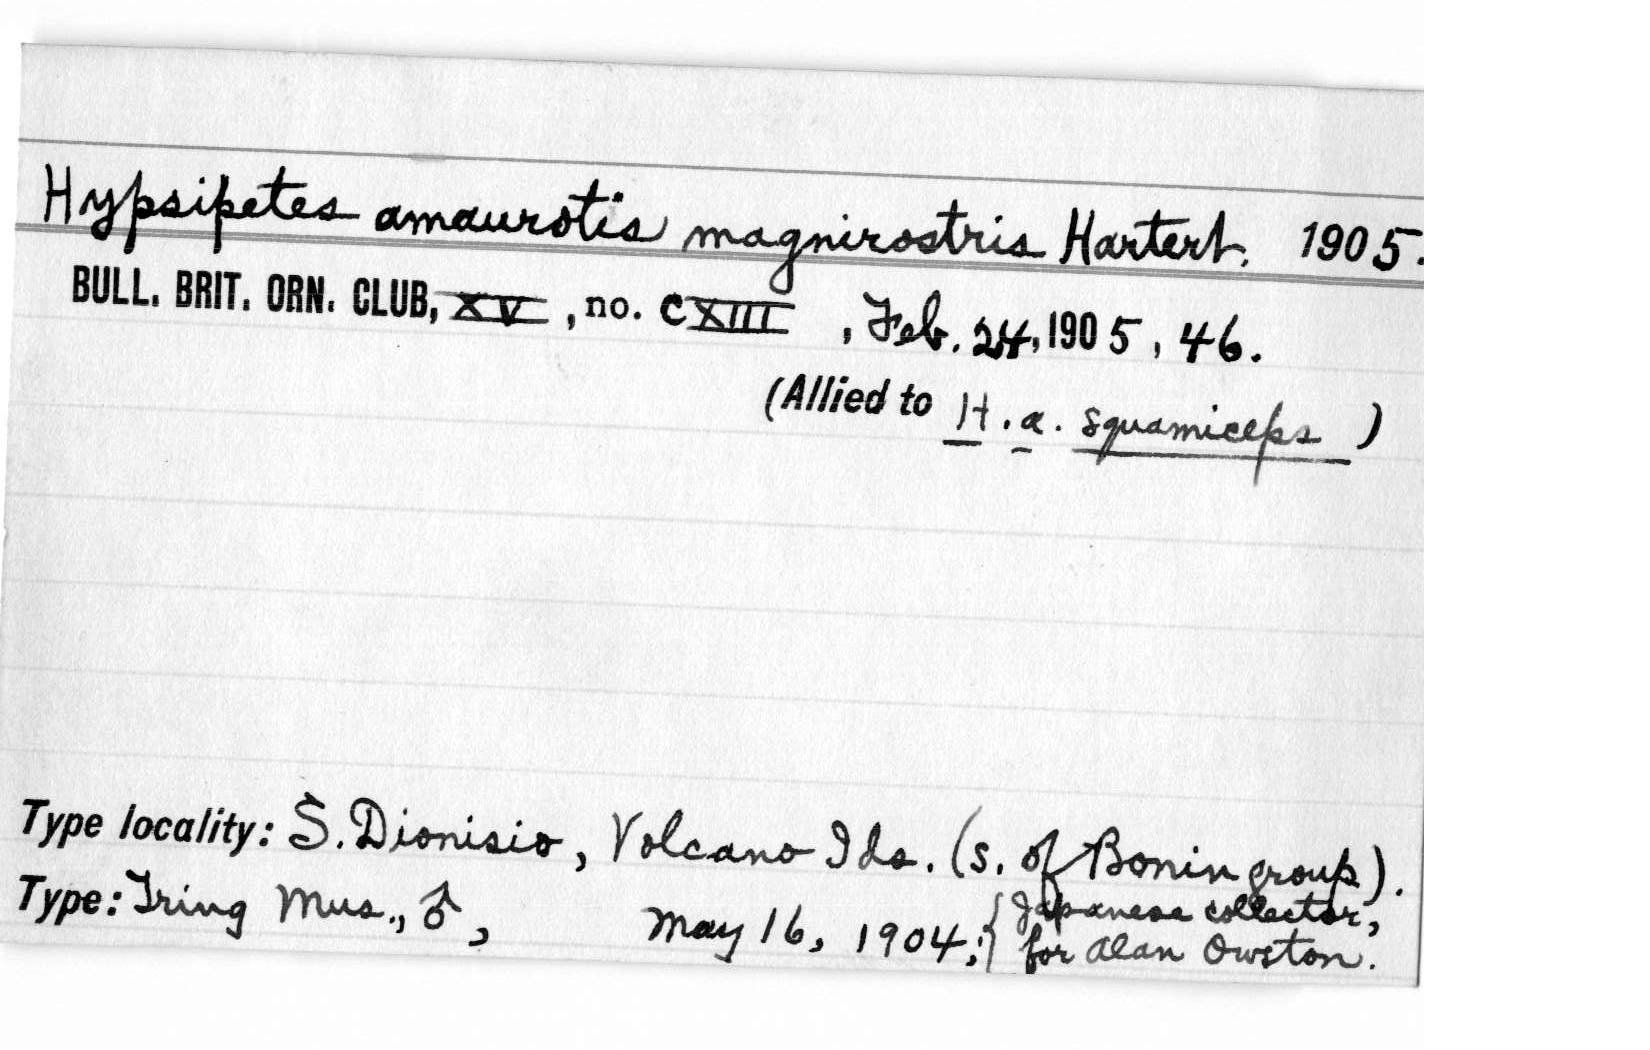 Hypsipetes amaurotis magnirostris Hartert. 1905.
BULL. BRIT. ORN. CLUB, XV, no. CXIII, Feb. 24, 1905, 46.
(Allied to H. a. squamiceps)
Type locality: S. Dionisio, Volcano Ids. (s. of Bonin group).
Type: Tring Mus., ♂, May 16, 1904; { Japanese collector,
for Alan Owston.